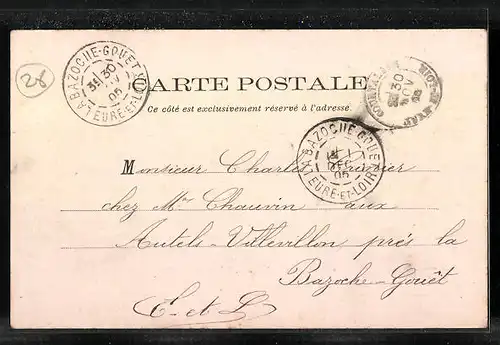 28
LA BAZOCHE-GOUET
30
NOV
05
EURE-ET-LOIR
CARTE POSTALE
Ce côté est exclusivement réservé à l'adresse.
30
NOV
LA BAZOCHE-GOUET
DEC
05
EURE-ET-LOIR
Monsieur Charles
chez Mr Chauvin aux
Autels-Villevillon près la
Bazoche-Gouët
E-et L